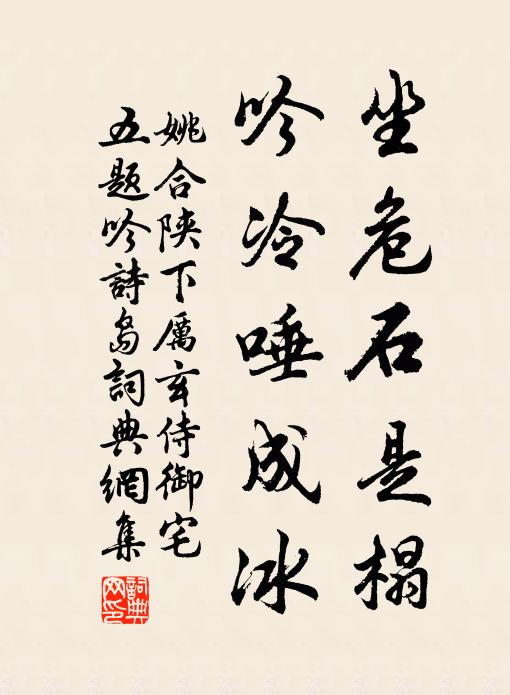 坐危石是榻
吟冷唾成冰
姚合陝下厲玄侍御宅
五题吟詩島詞典網集
詞典